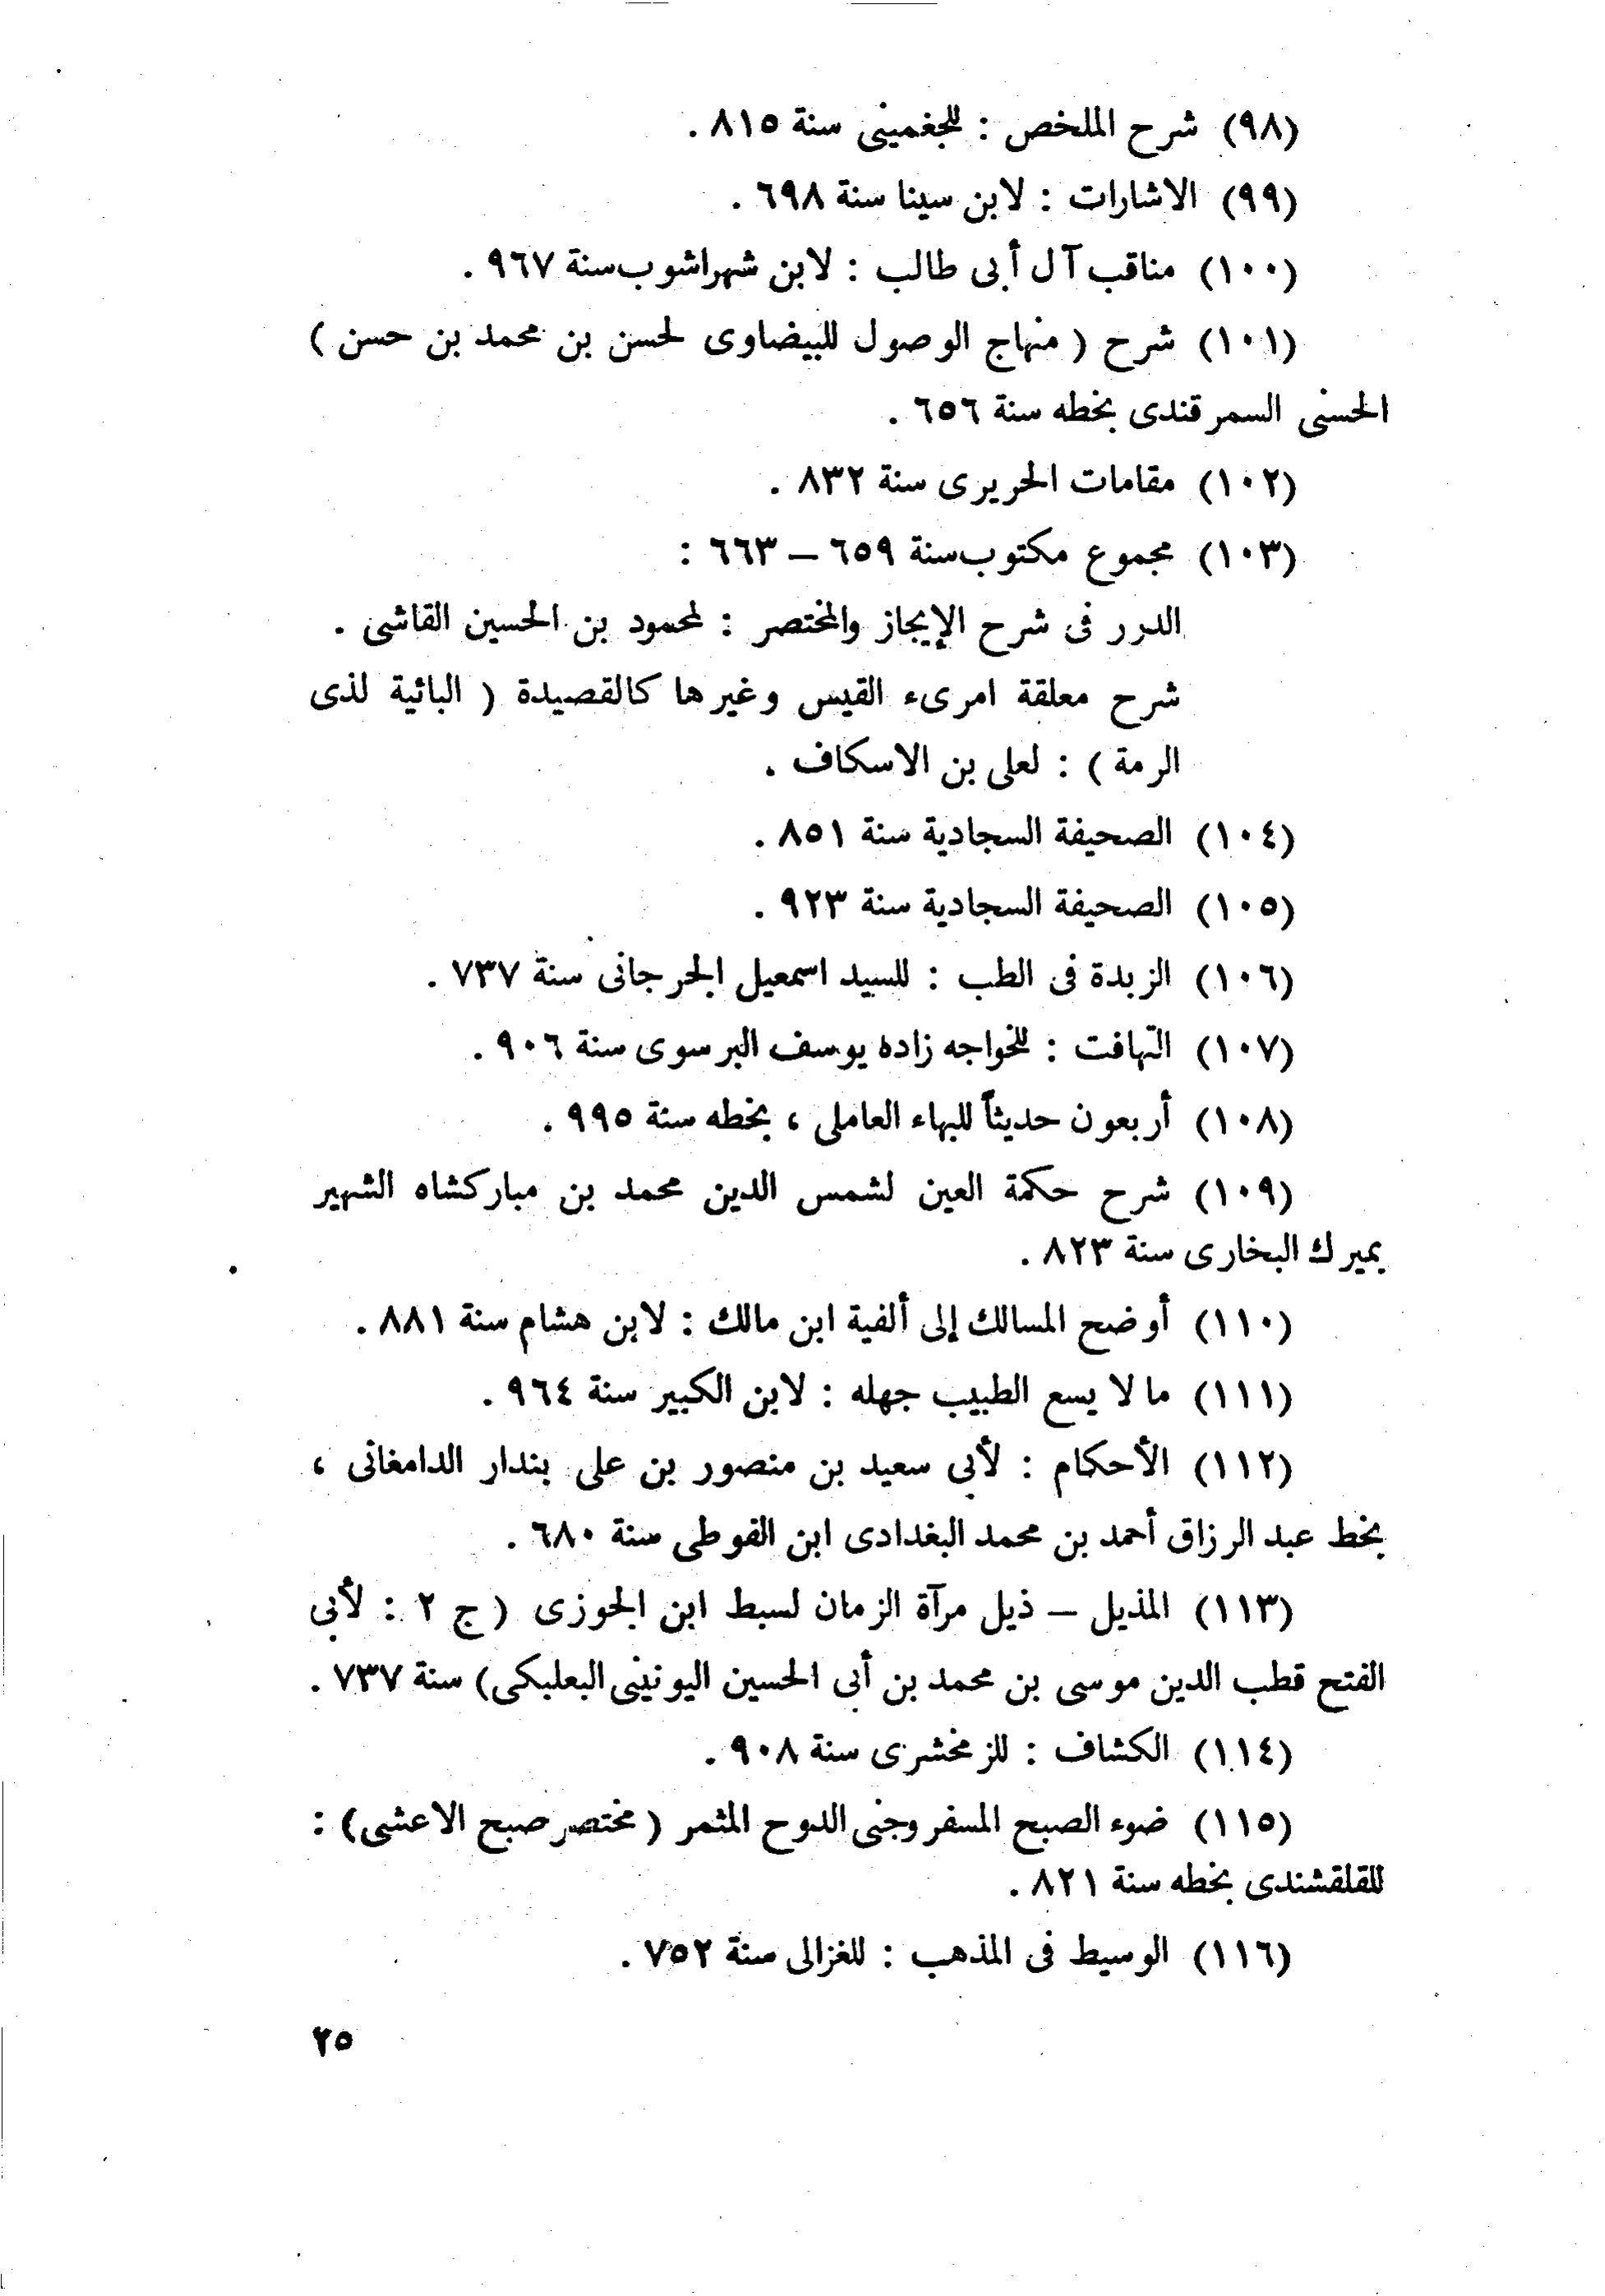 (٩٨) شرح الملخص : للجغميني سنة ٨١٥ .
(٩٩) الاشارات : لابن سينا سنة ٦٩٨ .
(١٠٠) مناقب آل أبى طالب : لابن شهراشوب سنة ٩٦٧ .
(١٠١) شرح ( منهاج الوصول للبيضاوى لحسن بن محمد بن حسن )
الحسنى السمرقندى بخطه سنة ٦٥٦ .
(١٠٢) مقامات الحريرى سنة ٨٣٢ .
(١٠٣) مجموع مكتوب سنة ٦٥٩ – ٦٦٣ :
الدرر فى شرح الإيجاز والمختصر : لمحمود بن الحسين القاشى .
شرح معلقة امرىء القيس وغيرها كالقصيدة ( البائية لذى
الرمة ) : لعلى بن الاسكاف .
(١٠٤) الصحيفة السجادية سنة ٨٥١ .
(١٠٥) الصحيفة السجادية سنة ٩٢٣ .
(١٠٦) الزبدة فى الطب : للسيد اسمعيل الجرجانى سنة ٧٣٧ .
(١٠٧) التهافت : للخواجه زاده يوسف البرسوى سنة ٩٠٦ .
(١٠٨) أربعون حديثاً للبهاء العاملى ، بخطه سنة ٩٩٥ .
(١٠٩) شرح حكمة العين لشمس الدين محمد بن مباركشاه الشهير
بميرك البخارى سنة ٨٢٣ .
(١١٠) أوضح المسالك إلى ألفية ابن مالك : لابن هشام سنة ٨٨١ .
(١١١) ما لا يسع الطبيب جهله : لابن الكبير سنة ٩٦٤ .
(١١٢) الأحكام : لأبى سعيد بن منصور بن على بندار الدامغانى ،
بخط عبد الرزاق أحمد بن محمد البغدادى ابن الفوطى سنة ٦٨٠ .
(١١٣) المذيل – ذيل مرآة الزمان لسبط ابن الجوزى ( ج ٢ : لأبى
الفتح قطب الدين موسى بن محمد بن أبى الحسين اليونينى البعلبكى) سنة ٧٣٧ .
(١١٤) الكشاف : للزمخشرى سنة ٩٠٨ .
(١١٥) ضوء الصبح المسفر وجنى الدوح المثمر ( مختصر صبح الاعشى) :
للقلقشندى بخطه سنة ٨٢١ .
(١١٦) الوسيط فى المذهب : للغزالى سنة ٧٥٢ .
٢٥